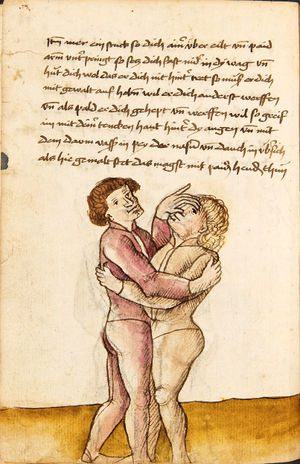 Itm mer ein stuck so dich ainer über eilt vn paid
arm unter pringt so setz dich fast nider in dy wag vn
hüt dich wol das er dich nit hinter trett so muß er dich
mit gewalt auff habn wil er dich anderst werffen
vn als pald er dich gehept vn werffen wil so greif
im mit dem rencken hant hinter dy augen vn mit
dem dawm vast in pey der nasn vn dauch in übersich
als hie gemalt stet das magst mit paidn hendn thun